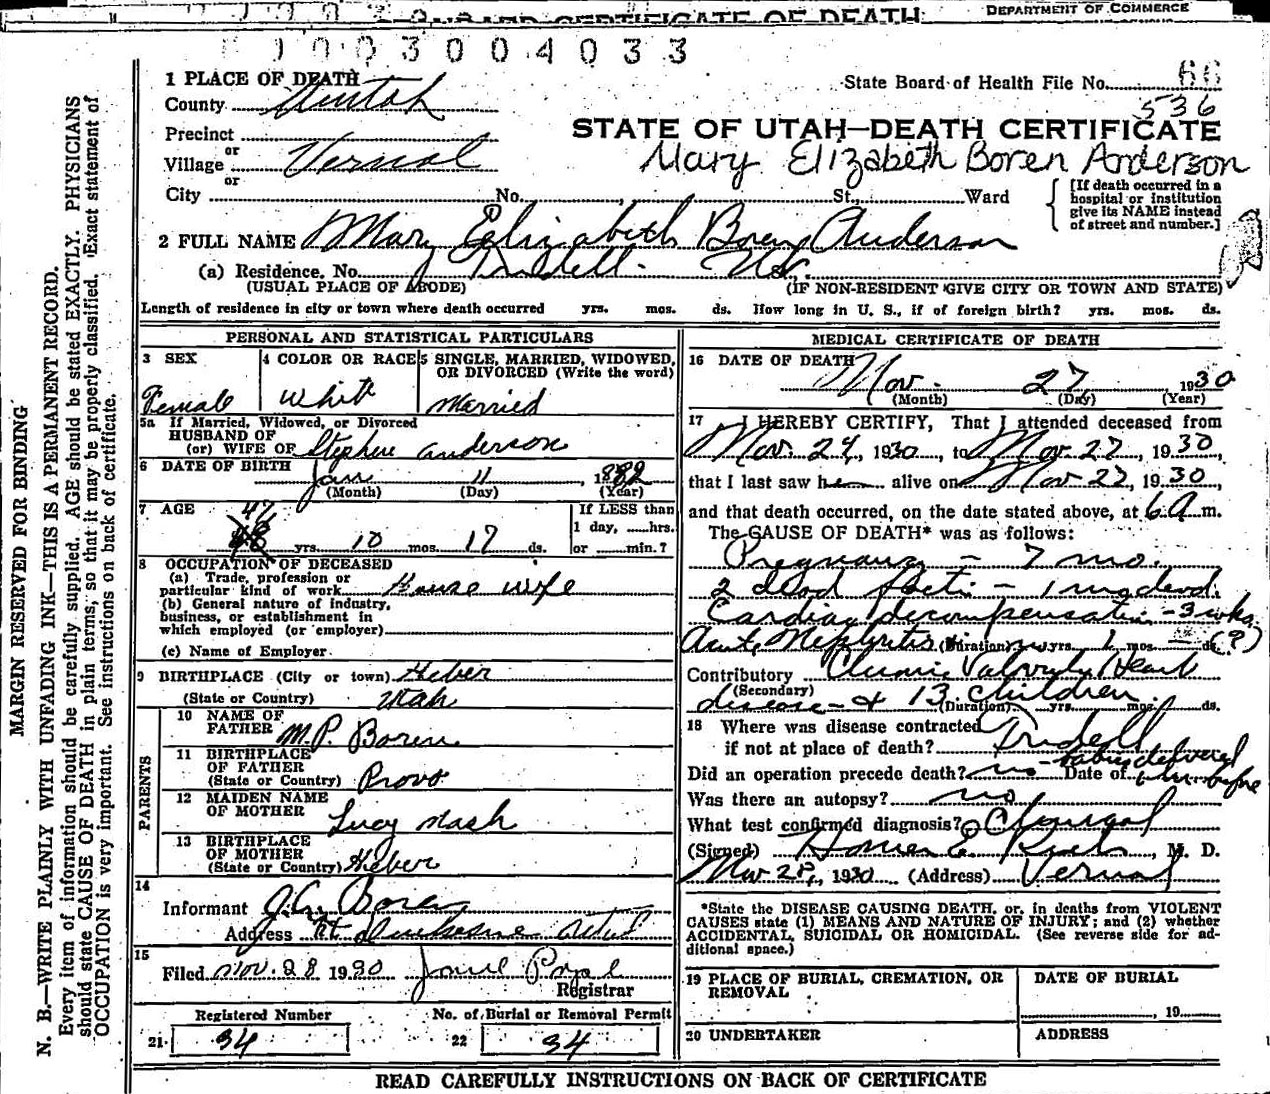 DEPARTMENT OF COMMERCE
CERTIFICATE OF DEATH
003004033
1 PLACE OF DEATH
State Board of Health File No. 66
536
County Uintah
STATE OF UTAH—DEATH CERTIFICATE
Precinct
or
Village Vernal
Mary Elizabeth Boren Anderson
or
City No. St., Ward
[If death occurred in a hospital or institution give its NAME instead of street and number.]
2 FULL NAME Mary Elizabeth Boren Anderson
(a) Residence, No. Tridell St.,
(USUAL PLACE OF ABODE) (IF NON-RESIDENT GIVE CITY OR TOWN AND STATE)
Length of residence in city or town where death occurred yrs. mos. ds. How long in U. S., if of foreign birth? yrs. mos. ds.
PERSONAL AND STATISTICAL PARTICULARS
3 SEX
Female
4 COLOR OR RACE
White
5 SINGLE, MARRIED, WIDOWED, OR DIVORCED (Write the word)
Married
5a If Married, Widowed, or Divorced
HUSBAND OF
(or) WIFE OF Stephen Anderson
6 DATE OF BIRTH Jan 11, 1882
(Month) (Day) (Year)
7 AGE
47
48 yrs. 10 mos. 17 ds.
If LESS than
1 day, hrs.
or min.?
8 OCCUPATION OF DECEASED
(a) Trade, profession or
particular kind of work House wife
(b) General nature of industry,
business, or establishment in
which employed (or employer)
(c) Name of Employer
9 BIRTHPLACE (City or town) Heber
(State or Country) Utah
PARENTS
10 NAME OF
FATHER M.P. Boren
11 BIRTHPLACE
OF FATHER
(State or Country) Provo
12 MAIDEN NAME
OF MOTHER Lucy Mash
13 BIRTHPLACE
OF MOTHER
(State or Country) Heber
14
Informant J.A. Boren
Address Rt Duchesne
15
Filed Nov. 28 1930
Registrar
Registered Number
21 34
No. of Burial or Removal Permit
22 34
MEDICAL CERTIFICATE OF DEATH
16 DATE OF DEATH
Nov. 27, 1930
(Month) (Day) (Year)
17 I HEREBY CERTIFY, That I attended deceased from
Nov. 24, 1930, to Nov. 27, 1930,
that I last saw her alive on Nov 27, 1930,
and that death occurred, on the date stated above, at 6 A m.
The CAUSE OF DEATH* was as follows:
Pregnancy - 7 mo.
2 dead foeti - 1 macerated.
Cardiac decompensation - 3 wks.
Acute Nephritis (Duration) yrs. 1 mos. ds. (?)
Contributory Chronic Valvular Heart
(Secondary)
disease - & 13 children.
(Duration) yrs. mos. ds.
18 Where was disease contracted
if not at place of death? Tridell
Did an operation precede death? no - babies delivered Date of before
Was there an autopsy? no
What test confirmed diagnosis? Clinical
(Signed) Homer E. , M. D.
Nov 28, 1930 (Address) Vernal
*State the DISEASE CAUSING DEATH, or, in deaths from VIOLENT
CAUSES state (1) MEANS AND NATURE OF INJURY; and (2) whether
ACCIDENTAL, SUICIDAL OR HOMICIDAL. (See reverse side for additional space.)
19 PLACE OF BURIAL, CREMATION, OR
REMOVAL
DATE OF BURIAL
, 19
20 UNDERTAKER
ADDRESS
READ CAREFULLY INSTRUCTIONS ON BACK OF CERTIFICATE
MARGIN RESERVED FOR BINDING
N. B.—WRITE PLAINLY WITH UNFADING INK—THIS IS A PERMANENT RECORD.
Every item of information should be carefully supplied. AGE should be stated EXACTLY. PHYSICIANS
should state CAUSE OF DEATH in plain terms, so that it may be properly classified. Exact statement of
OCCUPATION is very important. See instructions on back of certificate.